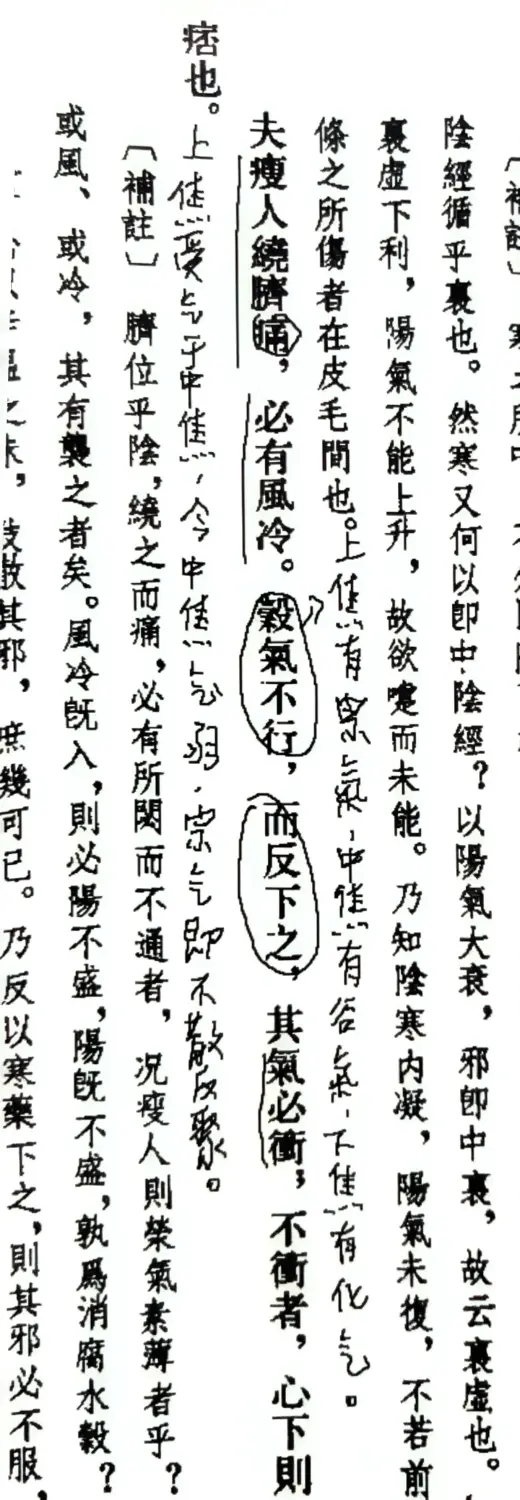 〔補註〕
陰經循乎裏也。然寒又何以卽中陰經？以陽氣大衰，邪卽中裏，故云裏虛也。
裏虛下利，陽氣不能上升，故欲嚏而未能。乃知陰寒内凝，陽氣未復，不若前
條之所傷者在皮毛間也。上焦有宗氣，中焦有谷氣，下焦有化气。
夫瘦人繞臍痛，必有風冷。穀氣不行，而反下之，其氣必衝；不衝者，心下則
痞也。上焦受气于中焦，今中焦气弱，宗气即不散反聚。
〔補註〕臍位乎陰，繞之而痛，必有所閡而不通者，況瘦人則榮氣素薄者乎？
或風、或冷，其有襲之者矣。風冷旣入，則必陽不盛，陽旣不盛，孰爲消腐水穀？
其邪，庶幾可已。乃反以寒藥下之，則其邪必不服，